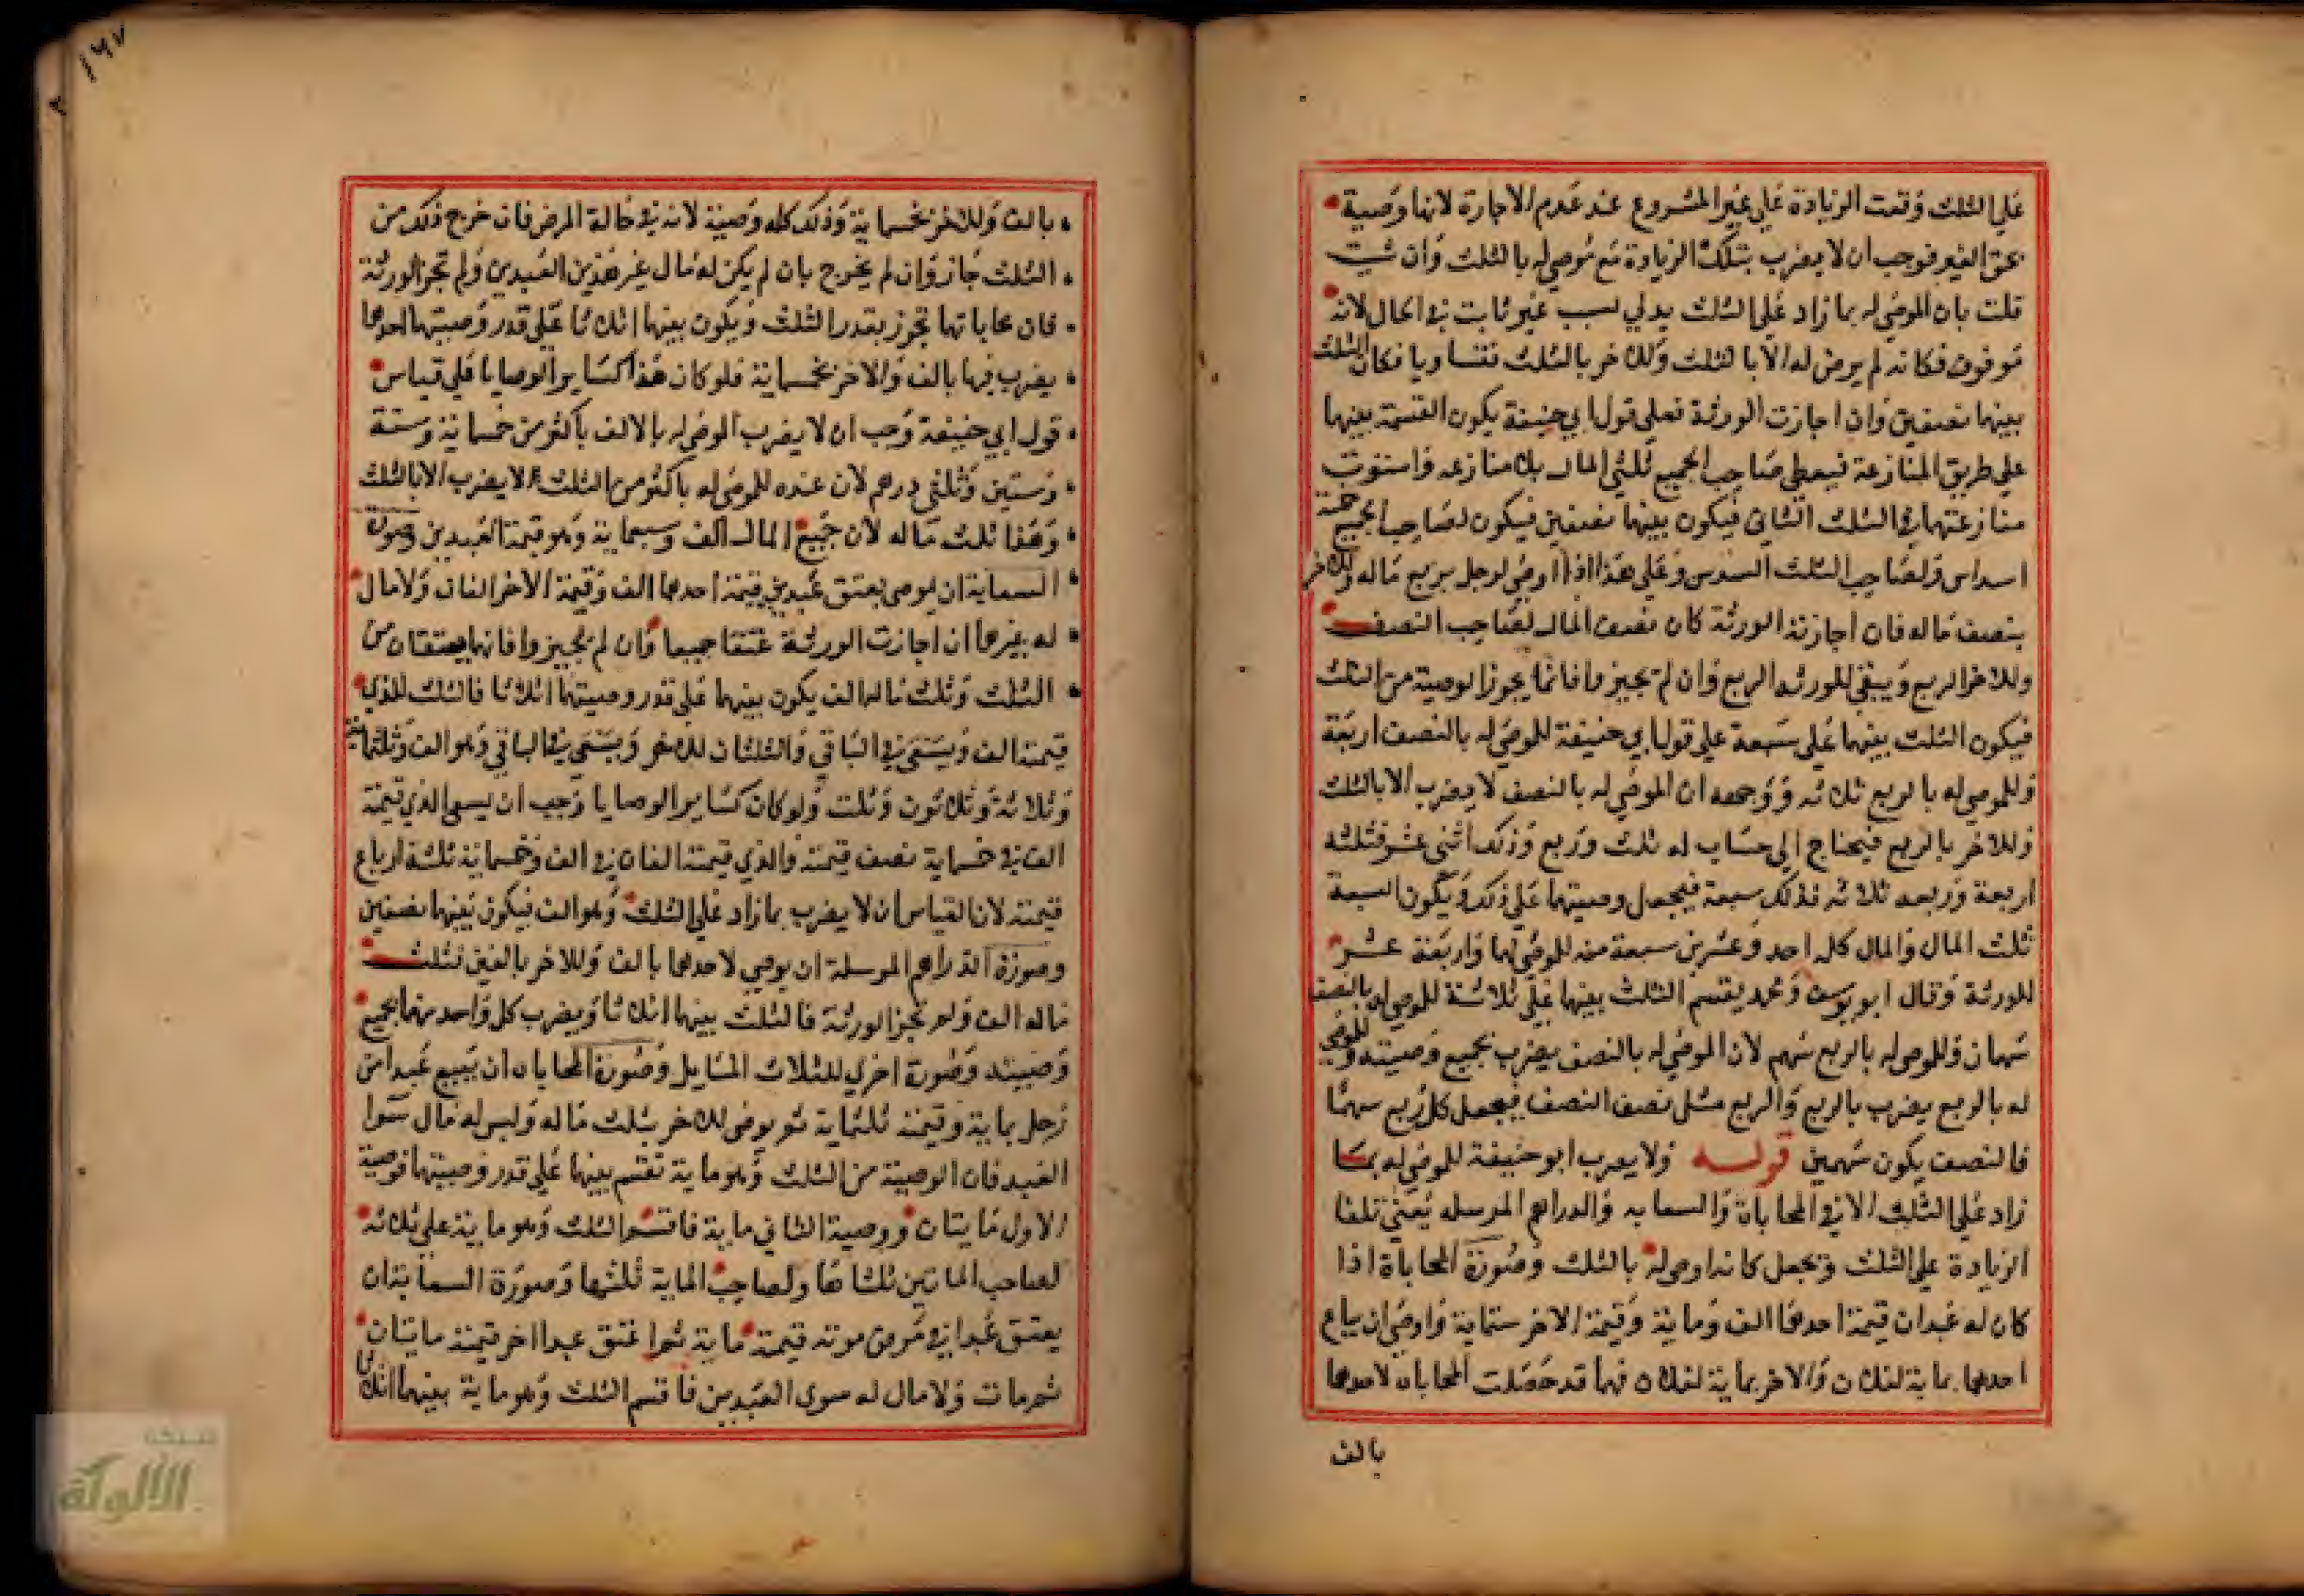 علي الثلث وقعت الزيادة علي غير المشروع عند عدم الاجازة لانها وصية
بحق الغير فوجب ان لا يضرب بتلك الزيادة مع موصي له بالثلث وان شيت
قلت بان الموصي له بما زاد علي الثلث يدلي بسبب غير ثابت في الحال لانه
موقوف فكانه لم يوص له الا بالثلث وللاخر بالثلث فتساويا فكان الثلث
بينهما نصفين وان اجازت الورثة فعلي قول ابي حنيفة يكون القسمة بينهما
علي طريق المنازعة فيعطي صاحب الجميع ثلثي المال بلا منازعه واستوت
منازعتهما في الثلث الثاني فيكون بينهما نصفين فيكون لصاحب الجميع خمسة
اسداس ولصاحب الثلث السدس وعلي هذا اذا اوصي لرجل بربع ماله وللاخر
بنصف ماله فان اجازته الورثة كان نصف المال لصاحب النصف
وللاخر الربع ويبقي للورثه الربع وان لم يجيزوا فانما يجوز الوصية من الثلث
فيكون الثلث بينهما علي سبعة علي قول ابي حنيفة للموصي له بالنصف اربعة
وللموصي له بالربع ثلاثه ووجهه ان الموصي له بالنصف لا يضرب الا بالثلث
وللاخر بالربع فيحتاج الي حساب له ثلث وربع وذلك اثني عشر فثلثه
اربعة وربعه ثلاثه فذلك سبعة فيجعل وصيتهما علي ذلك ويكون السبعة
ثلث المال والمال كله احد وعشرين سبعة منه للموصي لهما واربعة عشر
للورثة وقال ابو يوسف ومحمد يقسم الثلث بينهما علي ثلاثة للموصي له بالنصف
سهمان وللموصي له بالربع سهم لان الموصي له بالنصف يضرب بجميع وصيته وللموصي
له بالربع يضرب بالربع والربع مثل نصف النصف فيجعل كل ربع سهما
فالنصف يكون سهمين قوله ولا يضرب ابو حنيفة للموصي له بما
زاد علي الثلث الا في المحاباة والسعايه والدراهم المرسله يعني تلغا
الزيادة علي الثلث وتجعل كانه اوصي له بالثلث وصورة المحاباة اذا
كان له عبدان قيمة احدهما الف وماية وقيمة الاخر ستماية واوصي ان يباع
احدهما بماية لفلان والاخر بماية لفلان فهما قد حصلت المحاباه لاحدهما
بالف
١٦٧
بالف وللاخر بخمسماية وذلك كله وصية لانه في حالة المرض فان خرج ذلك من
الثلث جاز وان لم يخرج بان لم يكن له مال غير هذين العبدين ولم تجز الورثة
فان محاباتهما تجوز بقدر الثلث ويكون بينهما اثلاثا علي قدر وصيتهما احدهما
يضرب فيها بالف والاخر بخمسماية فلو كان هذا كساير الوصايا فلي قياس
قول ابي حنيفة وجب ان لا يضرب الموصي له بالالف باكثر من خمسماية وستة
وستين وثلثي درهم لان عنده للموصي له باكثر من الثلث لا يضرب الا بالثلث
وهذا ثلث ماله لان جميع المال الف وسبعماية وهو قيمة العبدين وصورة
السعاية ان يوصي بعتق عبدين قيمة احدهما الف وقيمة الاخر الفان ولا مال
له غيرهما ان اجازت الورثة عتقا جميعا وان لم يجيزوا فانهما يعتقان من
الثلث وثلث ماله الف يكون بينهما علي قدر وصيتهما اثلاثا فالثلث للذي
قيمته الف ويسعي في الباقي والثلثان للاخر ويسعي في الباقي وهو الف وثلثماية
وثلاثة وثلاثون وثلث ولو كان كساير الوصايا وجب ان يسعي الذي قيمته
الف في خمسماية نصف قيمته والذي قيمته الفان في الف وخمسماية ثلثة ارباع
قيمته لان القياس ان لا يضرب بما زاد علي الثلث وهو الف فيكون بينهما نصفين
وصورة الدراهم المرسلة ان يوصي لاحدهما بالف وللاخر بالفين فثلث
ماله الف ولم تجز الورثة فالثلث بينهما اثلاثا ويضرب كل واحد منهما بجميع
وصيته وصورة اخري للثلاث المسايل وصورة المحاباه ان يبيع عبدا من
رجل بماية وقيمته ثلثماية ثم يوصي للاخر بثلث ماله وليس له مال سوا
العبد فان الوصية من الثلث وهو ماية تقسم بينهما علي قدر وصيتهما فوصية
الاول مايتان ووصية الثاني ماية فاقسم الثلث وهو ماية علي ثلاثه
لصاحب المايتين ثلثاها ولصاحب الماية ثلثها وصورة السعاية ان
يعتق عبدا في مرض موته قيمته ماية ثم اعتق عبدا اخر قيمته مايتان
ثم مات ولا مال له سوي العبدين فاقسم الثلث وهو ماية بينهما اثلاثا
شبكة
الألوكة